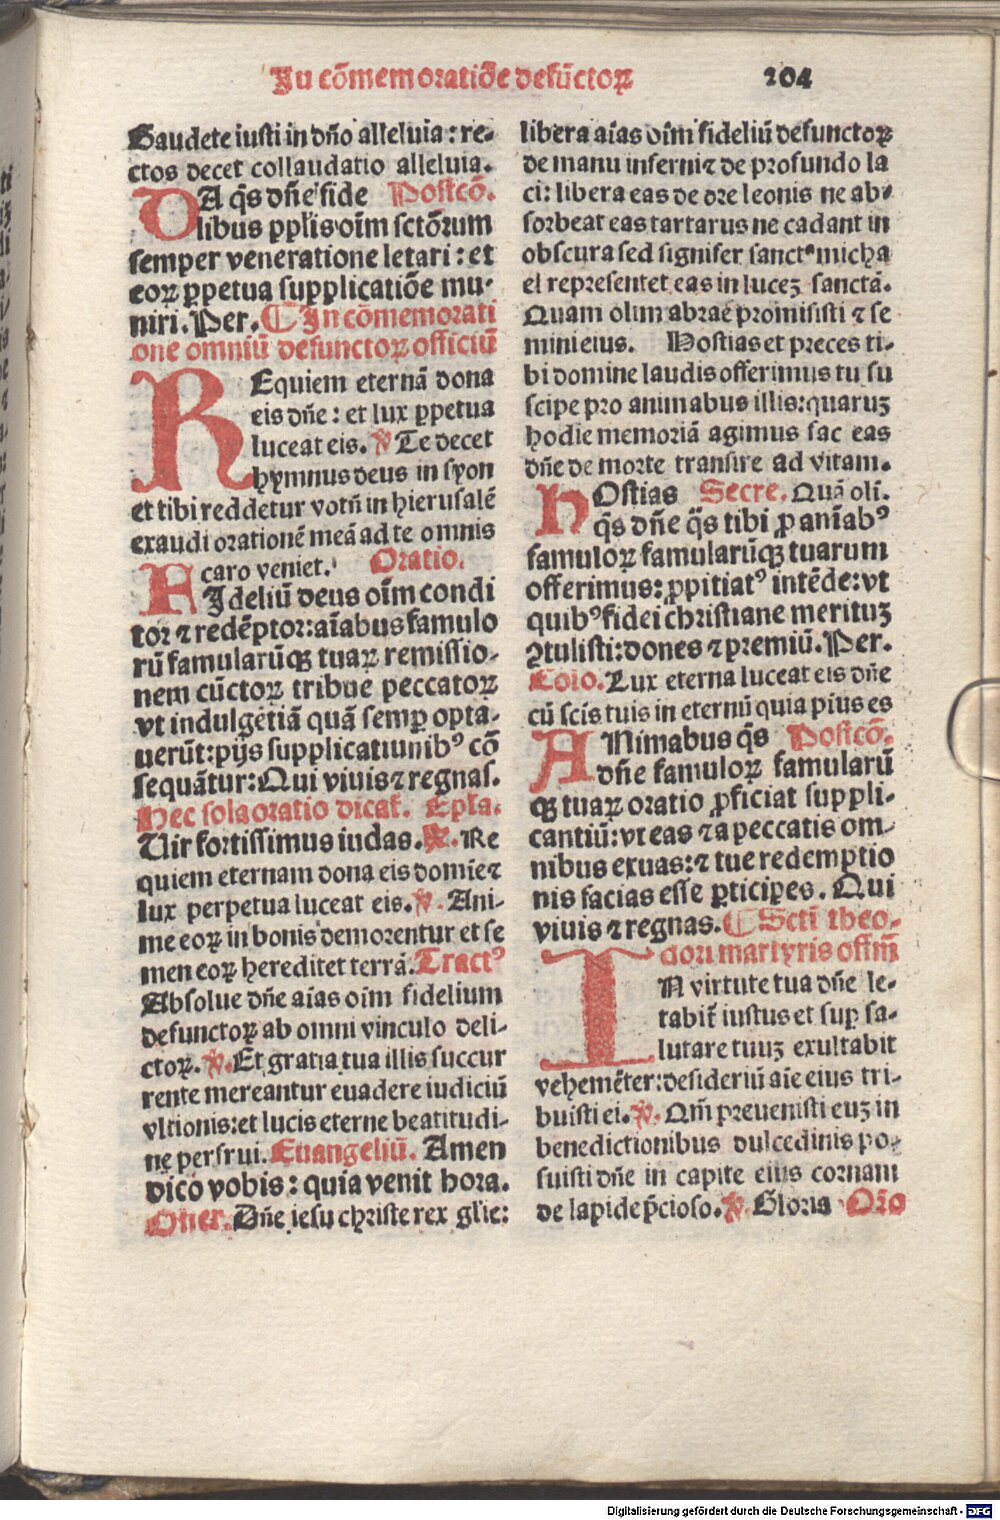 In cōmemoratiōe defūctoꝝ 204
Gaudete iusti in dño alleluia: re-
ctos decet collaudatio alleluia.
DA q̄s dñe fide Postcō.
libus pplis oīm sctōrum
semper veneratione letari: et
eoꝝ ꝑpetua supplicatiōe mu-
niri. Per. ¶ In cōmemorati
one omniū defunctoꝝ officiū
REquiem eternā dona
eis dñe: et lux ꝑpetua
luceat eis. ℣ Te decet
hymnus deus in syon
et tibi reddetur votū in hierusalē
exaudi orationē meā ad te omnis
caro veniet. Oratio.
FIdeliū deus oīm condi
tor ⁊ redēptor: aīabus famulo
rū famularūqꝫ tuaꝝ remissio-
nem cūctoꝝ tribue peccatoꝝ
vt indulgētiā quā semꝑ opta-
uerūt: pijs supplicatiunibꝰ cō
sequātur: Qui viuis ⁊ regnas.
Hec sola oratio dicat̄. Epl̄a.
Vir fortissimus iudas. ℟. Re
quiem eternam dona eis domīe ⁊
lux perpetua luceat eis. ℣. Ani-
me eoꝝ in bonis demorentur et se
men eoꝝ hereditet terrā. Tractꝰ
Absolue dñe aīas oīm fidelium
defunctoꝝ ab omni vinculo deli-
ctoꝝ. ℣. Et gratia tua illis succur
rente mereantur euadere iudiciū
vltionis: et lucis eterne beatitudi-
ne perfrui. Euangeliū. Amen
dico vobis: quia venit hora.
Offer. Dñe iesu christe rex glīe:
libera aīas oīm fideliū defunctoꝝ
de manu inferni ⁊ de profundo la
ci: libera eas de ore leonis ne ab-
sorbeat eas tartarus ne cadant in
obscura sed signifer sanctꝰ micha
el representet eas in luceꝫ sanctā.
Quam olim abrae promisisti ⁊ se
mini eius. Hostias et preces ti-
bi domine laudis offerimus tu su
scipe pro animabus illis: quaruꝫ
hodie memoriā agimus fac eas
dñe de morte transire ad vitam.
HOstias Secre. Quā oli.
q̄s dñe q̄s tibi ꝓ aniābꝰ
famuloꝝ famularūqꝫ tuarum
offerimus: ꝓpitiatꝰ intēde: vt
quibꝰ fidei christiane merituꝫ
ꝯtulisti: dones ⁊ premiū. Per.
Cōio. Lux eterna luceat eis dñe
cū scīs tuis in eternū quia pius es
ANimabus q̄s Postcō.
dñe famuloꝝ famularū
qꝫ tuaꝝ oratio ꝓficiat suppli-
cantiū: vt eas ⁊ a peccatis om-
nibus exuas: ⁊ tue redemptio
nis facias esse ꝑticipes. Qui
viuis ⁊ regnas. ¶ Scti theo-
dori martyris offīm
IN virtute tua dñe le-
tabit̄ iustus et suꝑ sa-
lutare tuuꝫ exultabit
vehemēter: desideriū aīe eius tri-
buisti ei. ℣. Qm̄ preuenisti euꝫ in
benedictionibus dulcedinis po-
suisti dñe in capite eius coronam
de lapide p̄cioso. ℣. Gloria Orō
Digitalisierung gefördert durch die Deutsche Forschungsgemeinschaft - DFG